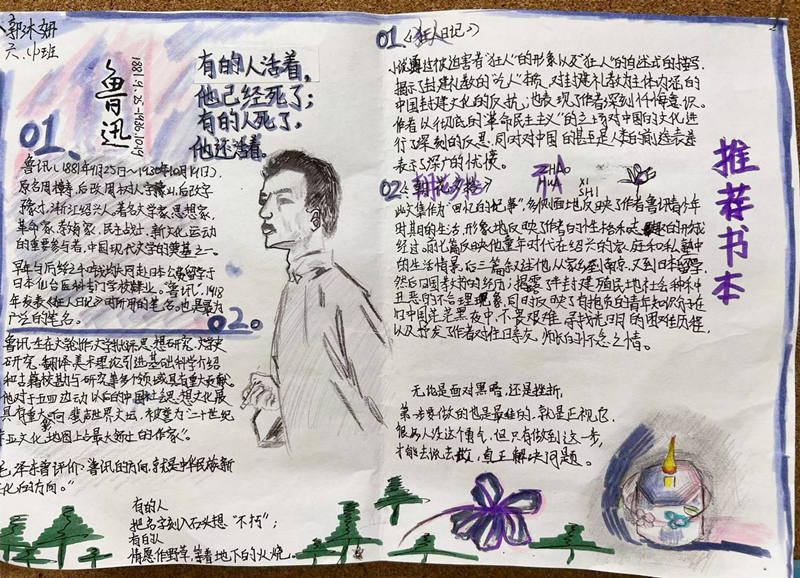 六.中班
鲁迅
1881.9.25-1936.10.19
有的人活着,
他已经死了;
有的人死了,
他还活着。
01.
鲁迅(1881年9月25日~1936年10月19日),
原名周樟寿,后改周树人,字豫山,后改字
豫才,浙江绍兴人,著名文学家、思想家、
革命家、教育家、民主战士,新文化运动
的重要参与者,中国现代文学的奠基之一。
早年与后
日本仙台医科专门学校肄业。"鲁迅",1918
年发表《狂人日记》时所用的笔名,也是最为
广泛的笔名。
02.
鲁迅一生在文学创作文学批评、思想研究、文学史
研究、翻译美术理论引进基础科学介绍
和古籍校勘与研究等多个领域具有重大贡献。
他对于五四运动以后的中国社会思想文化展
具有重大响,蜚声世界文坛,被誉为"二十世纪
东亚文化地图上占最大领土的作家"。
毛泽东曾评价:"鲁迅的方向,就是中华民族新
文化的方向。"
有的人
把名字刻入石头想"不朽";
有的人
情愿作野草,等着地下的火烧。
01.《狂人日记》
小说通过被迫害者"狂人"的形象以及"狂人"的自述式的描写,
揭示了封建礼教的"吃人"本质,
中国封建文化的反抗;也表现了作者深刻忏悔意识。
作者以彻底的"革命民主主义"的立场对中国的文化进
行了深刻的反思,同时对中国的甚至是人类的前途表达
表示了深广的忧愤。
02.《朝花夕拾》
ZHAO
HUA
XI
SHI
此文集作为"回忆的纪事",多侧面地反映了作者鲁迅青少年
时期的生活,形象地反映了作者的性格和志趣的形成
经过。前七篇反映他童年时代在绍兴的家庭和私塾中
的生活情景,后三篇叙述他从家乡到南京,又到日本留学,
然后回国教书的经历;揭露了半封建殖民地社会种种
丑恶的不合理现象,同时反映了有抱负的青年知识分子在
旧中国茫茫黑夜中,不畏艰难,寻找光明的困难历程,
以及抒发了作者对往日亲友、师长的怀念之情。
推荐书本
无论是面对黑暗,还是挫折,
第一步要做的也是最难的,就是正视它,
很多人没这个勇气,但只有做到这一步,
才能去做,真正解决问题。